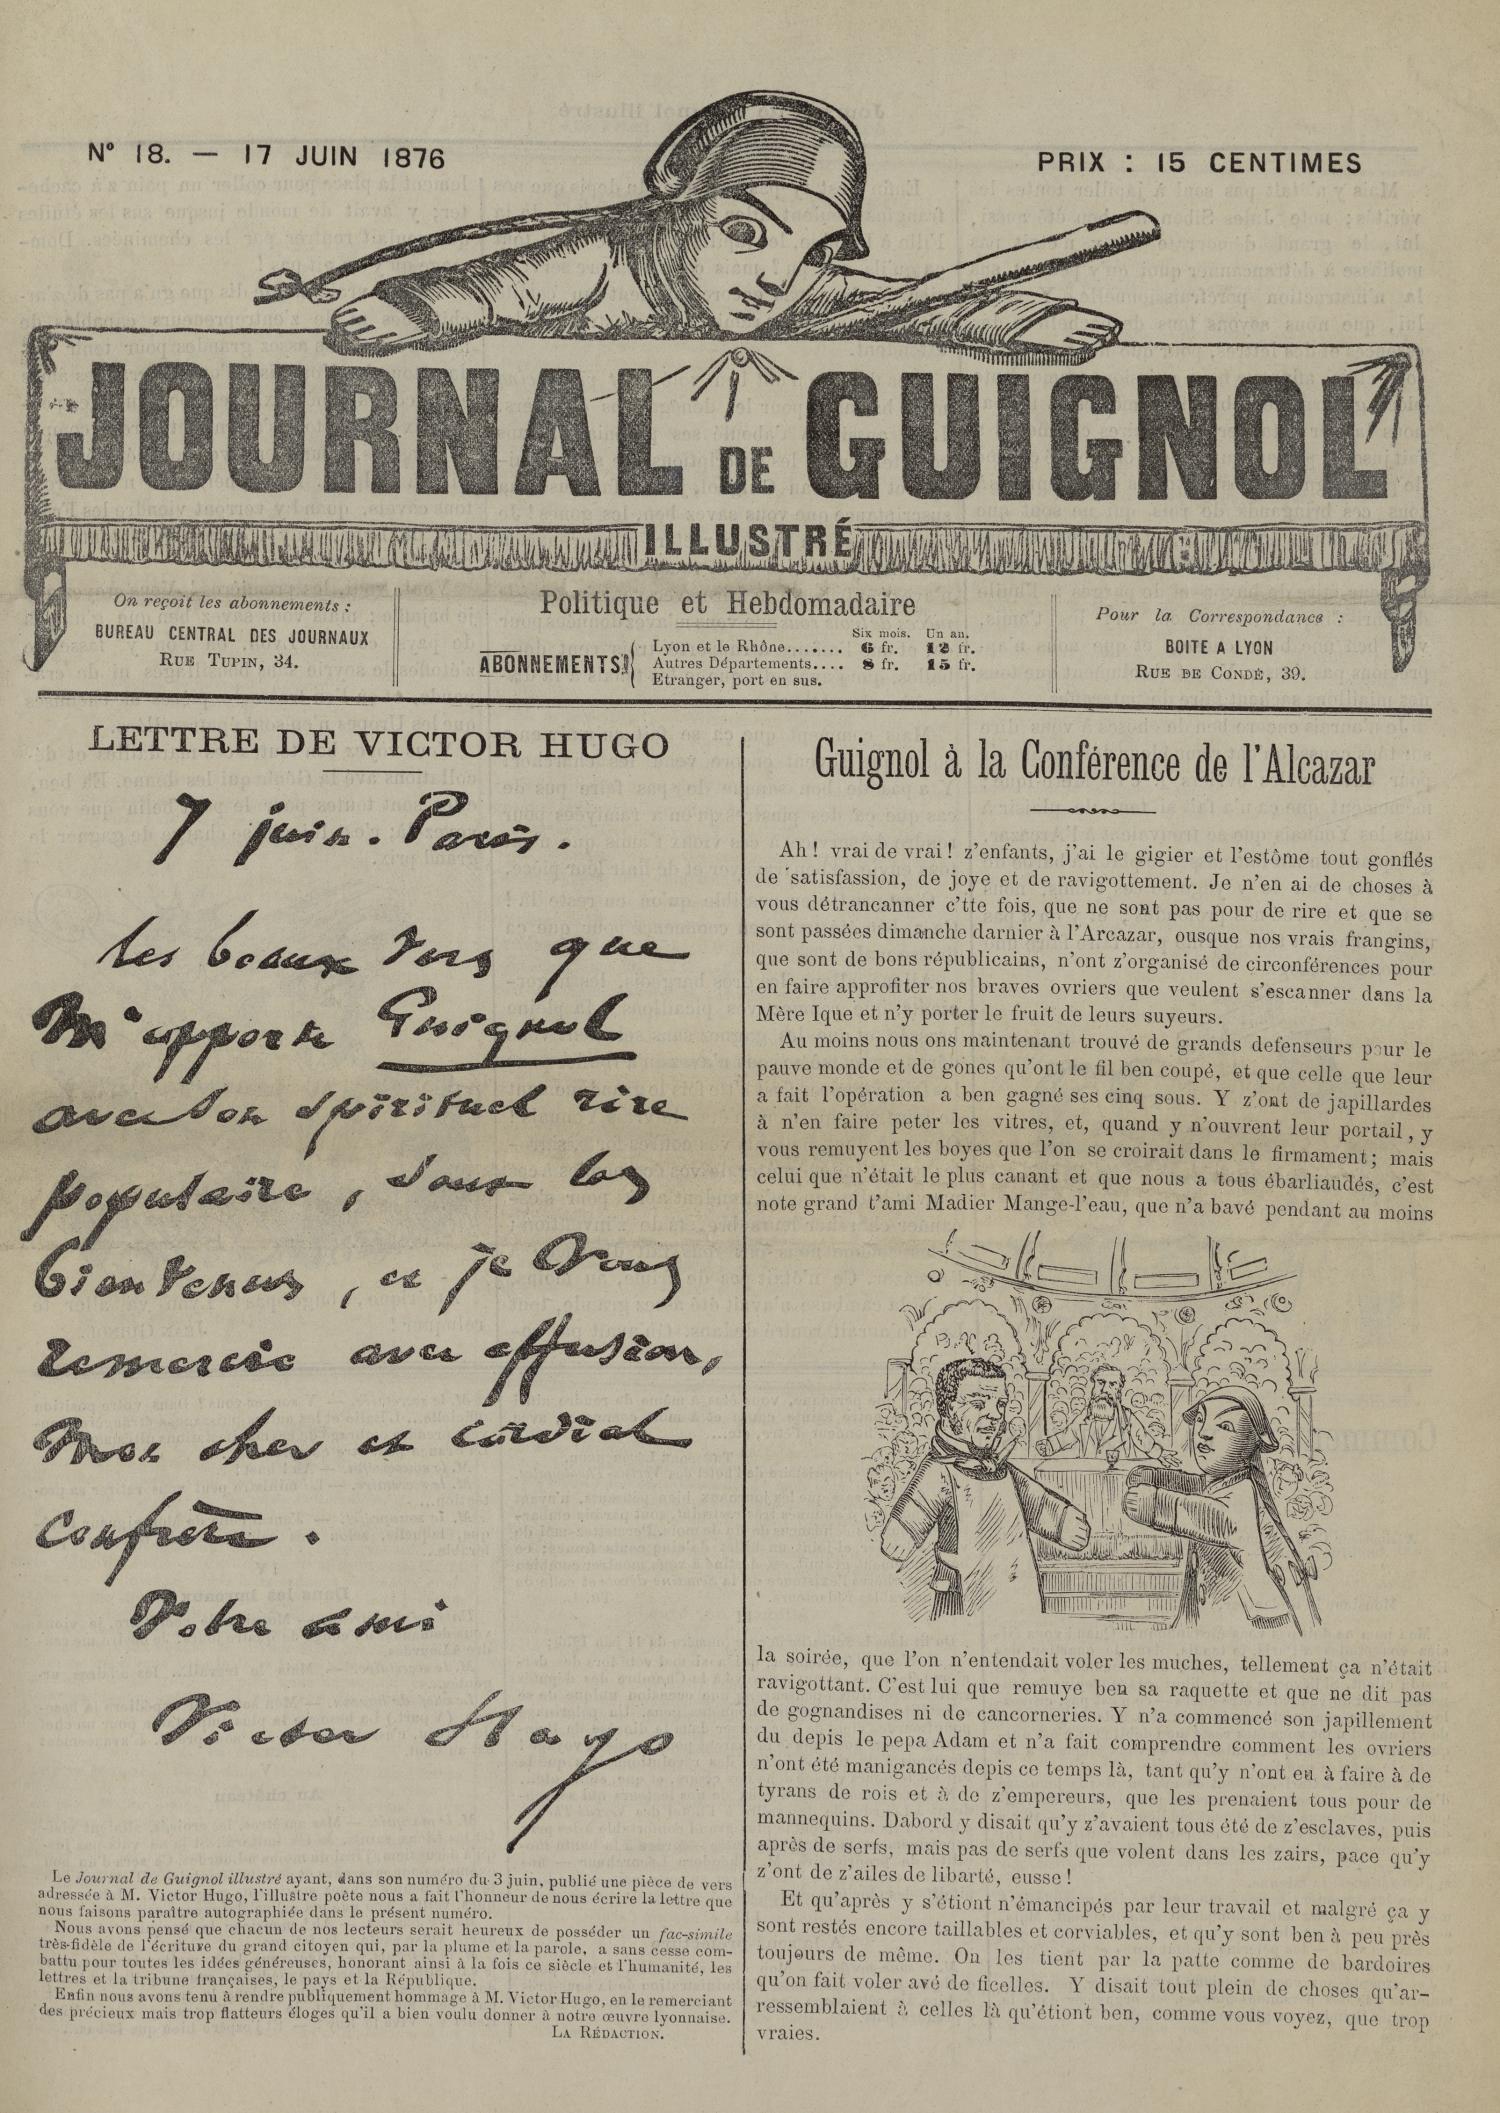 N° 18. — 17 JUIN 1876
PRIX : 15 CENTIMES
JOURNAL DE GUIGNOL
ILLUSTRÉ
On reçoit les abonnements :
BUREAU CENTRAL DES JOURNAUX
RUE TUPIN, 34.
Politique et Hebdomadaire
ABONNEMENTS
Six mois. Un an.
Lyon et le Rhône....... 6 fr. 12 fr.
Autres Départements.... 8 fr. 15 fr.
Etranger, port en sus.
Pour la Correspondance :
BOITE A LYON
RUE DE CONDÉ, 39.
LETTRE DE VICTOR HUGO
7 juin. Paris.
les beaux vers que
m'apporte Guignol
avec son spirituel rire
populaire, sont les
bienvenus, et je vous
remercie avec effusion,
mon cher et cordial
confrère.
Votre ami
Victor Hugo
Le Journal de Guignol illustré ayant, dans son numéro du 3 juin, publié une pièce de vers
adressée à M. Victor Hugo, l'illustre poète nous a fait l'honneur de nous écrire la lettre que
nous faisons paraître autographiée dans le présent numéro.
Nous avons pensé que chacun de nos lecteurs serait heureux de posséder un fac-simile
très-fidèle de l'écriture du grand citoyen qui, par la plume et la parole, a sans cesse com-
battu pour toutes les idées généreuses, honorant ainsi à la fois ce siècle et l'humanité, les
lettres et la tribune françaises, le pays et la République.
Enfin nous avons tenu à rendre publiquement hommage à M. Victor Hugo, en le remerciant
des précieux mais trop flatteurs éloges qu'il a bien voulu donner à notre œuvre lyonnaise.
LA RÉDACTION.
Guignol à la Conférence de l'Alcazar
Ah ! vrai de vrai ! z'enfants, j'ai le gigier et l'estôme tout gonflés
de satisfassion, de joye et de ravigottement. Je n'en ai de choses à
vous détrancanner c'tte fois, que ne sont pas pour de rire et que se
sont passées dimanche darnier à l'Arcazar, ousque nos vrais frangins,
que sont de bons républicains, n'ont z'organisé de circonférences pour
en faire approfiter nos braves ovriers que veulent s'escanner dans la
Mère Ique et n'y porter le fruit de leurs suyeurs.
Au moins nous ons maintenant trouvé de grands defenseurs pour le
pauve monde et de gones qu'ont le fil ben coupé, et que celle que leur
a fait l'opération a ben gagné ses cinq sous. Y z'ont de japillardes
à n'en faire peter les vitres, et, quand y n'ouvrent leur portail, y
vous remuyent les boyes que l'on se croirait dans le firmament ; mais
celui que n'était le plus canant et que nous a tous ébarliaudés, c'est
note grand t'ami Madier Mange-l'eau, que n'a bavé pendant au moins
la soirée, que l'on n'entendait voler les muches, tellement ça n'était
ravigottant. C'est lui que remuye ben sa raquette et que ne dit pas
de gognandises ni de cancorneries. Y n'a commencé son japillement
du depis le pepa Adam et n'a fait comprendre comment les ovriers
n'ont été manigancés depis ce temps là, tant qu'y n'ont eu à faire à de
tyrans de rois et à de z'empereurs, que les prenaient tous pour de
mannequins. Dabord y disait qu'y z'avaient tous été de z'esclaves, puis
après de serfs, mais pas de serfs que volent dans les zairs, pace qu'y
z'ont de z'ailes de libarté, eusse !
Et qu'après y s'étiont n'émancipés par leur travail et malgré ça y
sont restés encore taillables et corviables, et qu'y sont ben à peu près
toujeurs de même. On les tient par la patte comme de bardoires
qu'on fait voler avé de ficelles. Y disait tout plein de choses qu'ar-
ressemblaient à celles là qu'étiont ben, comme vous voyez, que trop
vraies.